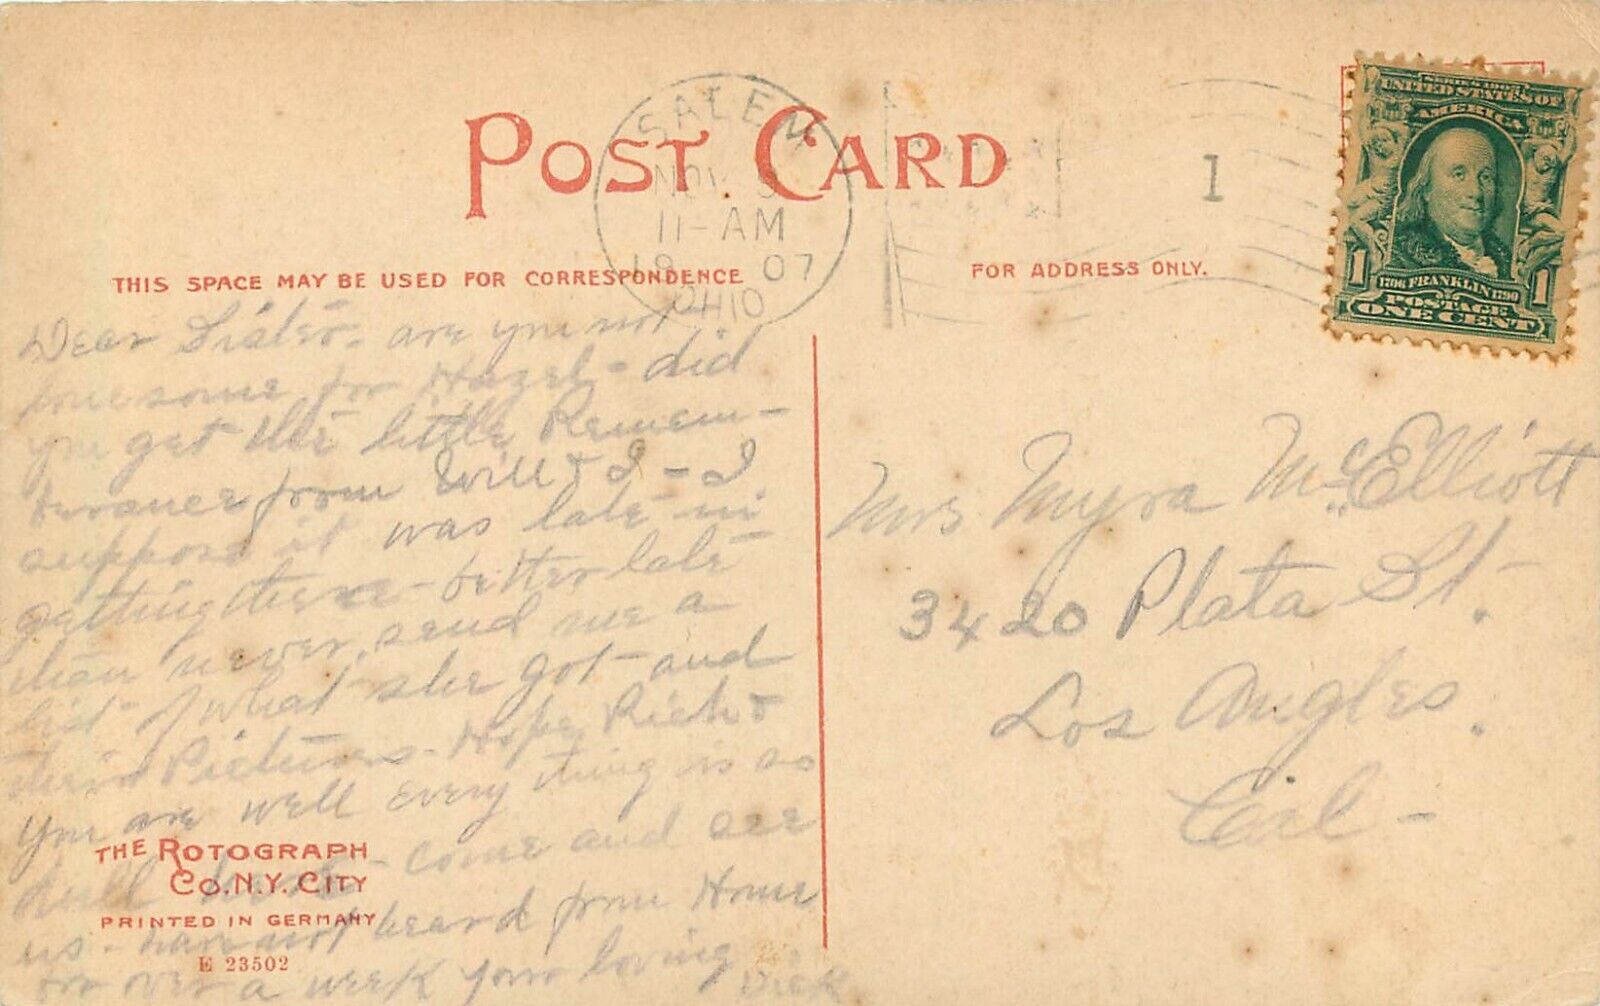 POST CARD
SALEM
NOV 9
11-AM
19 07
OHIO
1
SERIES 1902
UNITED STATES OF
AMERICA
1706 FRANKLIN 1790
POSTAGE
1 ONE CENT 1
THIS SPACE MAY BE USED FOR CORRESPONDENCE
FOR ADDRESS ONLY.
Dear Sister - are you not
lonesome for Hazel - did
you get the little Remem-
berance from Will & I - I
suppose it was late in
getting there - better late
than never, send me a
list of what she got - and
their Pictures - Hope Rich &
you are well every thing is so
dull here - come and see
us - have not heard from Home
for over a week your loving
Dick
Mrs Myra McElliott
3420 Plata St.
Los Angles.
Cal -
THE ROTOGRAPH
CO. N.Y. CITY
PRINTED IN GERMANY
E 23502